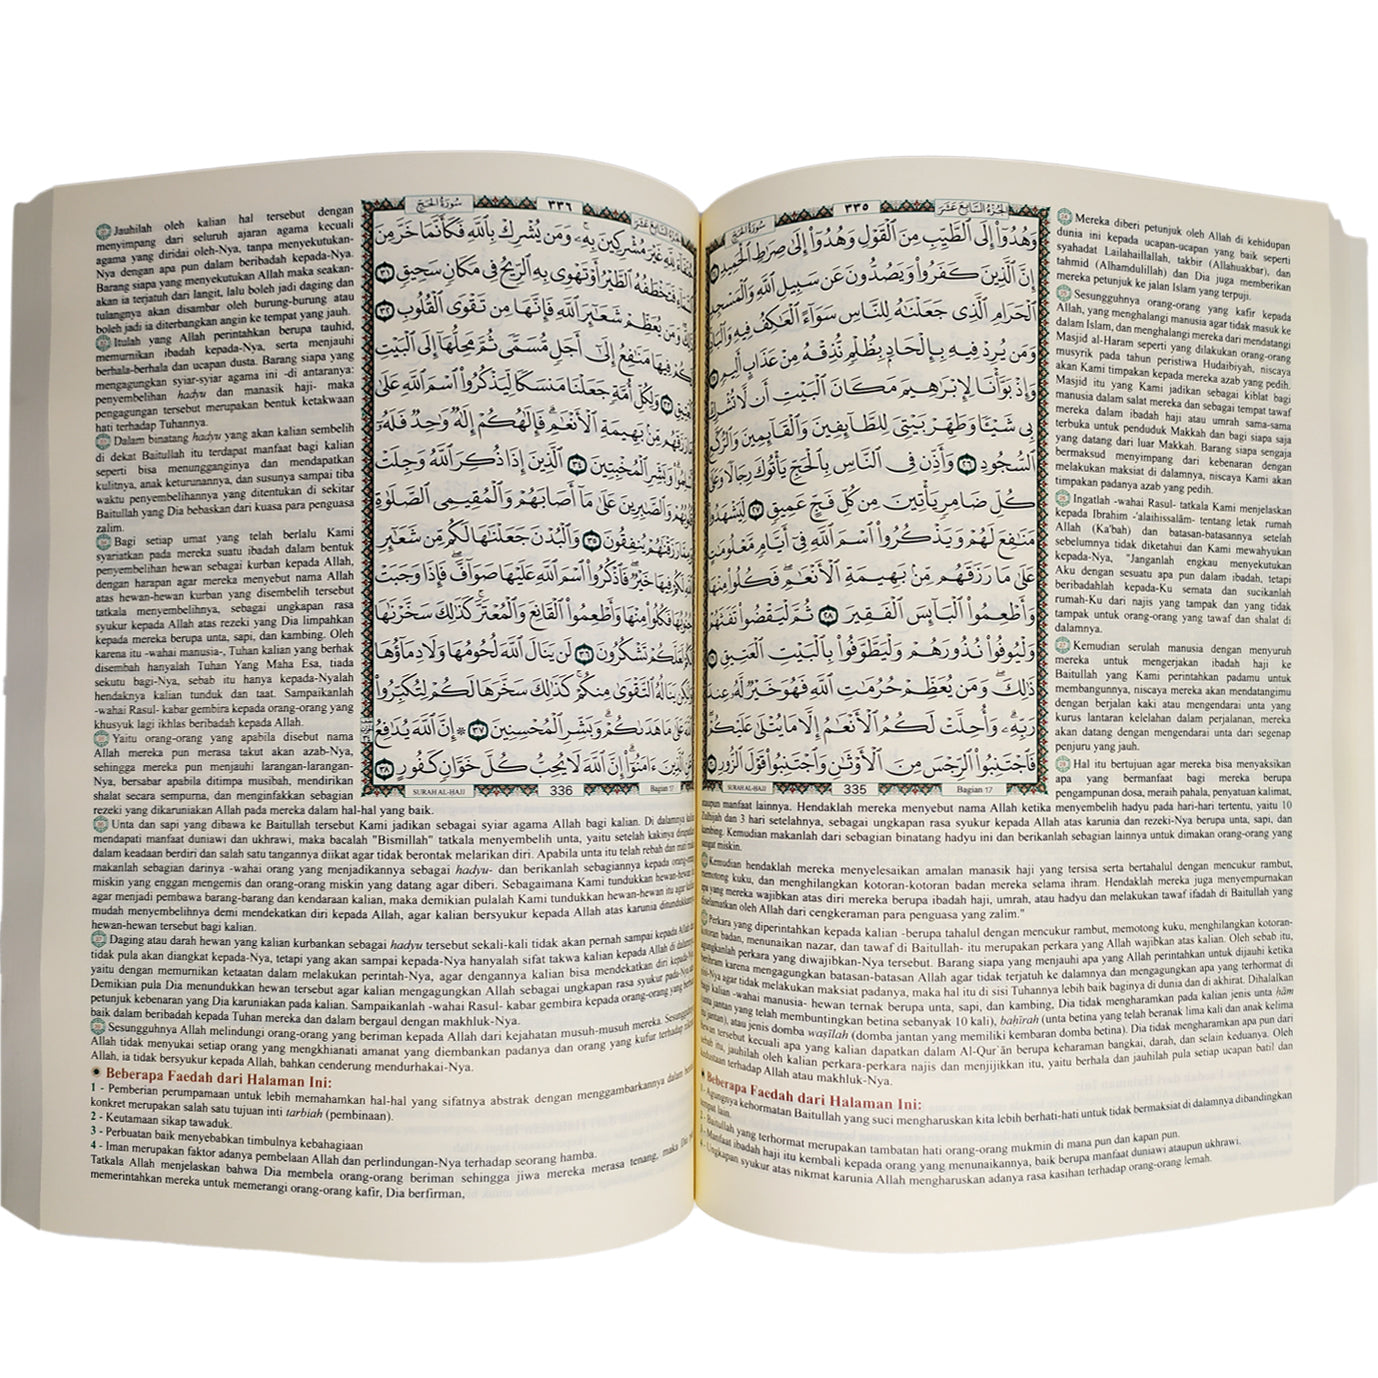 سُورَةُ الحَجِّ
٣٣٦
الجُزءُ السَّابِعَ عَشَرَ
غَيْرَ مُشْرِكِينَ بِهِۦۚ وَمَن يُشْرِكْ بِٱللَّهِ فَكَأَنَّمَا خَرَّ مِنَ
فَتَخْطَفُهُ ٱلطَّيْرُ أَوْ تَهْوِى بِهِ ٱلرِّيحُ فِى مَكَانٍ سَحِيقٍ ٣١
وَمَن يُعَظِّمْ شَعَٰٓئِرَ ٱللَّهِ فَإِنَّهَا مِن تَقْوَى ٱلْقُلُوبِ ٣٢
فِيهَا مَنَٰفِعُ إِلَىٰٓ أَجَلٍ مُّسَمًّى ثُمَّ مَحِلُّهَآ إِلَى ٱلْبَيْتِ
٣٣ وَلِكُلِّ أُمَّةٍ جَعَلْنَا مَنسَكًا لِّيَذْكُرُوا۟ ٱسْمَ ٱللَّهِ عَلَىٰ
مِّنۢ بَهِيمَةِ ٱلْأَنْعَٰمِۗ فَإِلَٰهُكُمْ إِلَٰهٌ وَٰحِدٌ فَلَهُۥٓ
وَبَشِّرِ ٱلْمُخْبِتِينَ ٣٤ ٱلَّذِينَ إِذَا ذُكِرَ ٱللَّهُ وَجِلَتْ
وَٱلصَّٰبِرِينَ عَلَىٰ مَآ أَصَابَهُمْ وَٱلْمُقِيمِى ٱلصَّلَوٰةِ
يُنفِقُونَ ٣٥ وَٱلْبُدْنَ جَعَلْنَٰهَا لَكُم مِّن شَعَٰٓئِرِ
فِيهَا خَيْرٌۖ فَٱذْكُرُوا۟ ٱسْمَ ٱللَّهِ عَلَيْهَا صَوَآفَّۖ فَإِذَا وَجَبَتْ
فَكُلُوا۟ مِنْهَا وَأَطْعِمُوا۟ ٱلْقَانِعَ وَٱلْمُعْتَرَّۚ كَذَٰلِكَ سَخَّرْنَٰهَا
لَعَلَّكُمْ تَشْكُرُونَ ٣٦ لَن يَنَالَ ٱللَّهَ لُحُومُهَا وَلَا دِمَآؤُهَا
يَنَالُهُ ٱلتَّقْوَىٰ مِنكُمْۚ كَذَٰلِكَ سَخَّرَهَا لَكُمْ لِتُكَبِّرُوا۟
عَلَىٰ مَا هَدَىٰكُمْۗ وَبَشِّرِ ٱلْمُحْسِنِينَ ٣٧ ۞ إِنَّ ٱللَّهَ يُدَٰفِعُ
ٱلَّذِينَ ءَامَنُوٓا۟ۗ إِنَّ ٱللَّهَ لَا يُحِبُّ كُلَّ خَوَّانٍ كَفُورٍ ٣٨
SURAH AL-HAJJ
336
Bagian 17
Jauhilah oleh kalian hal tersebut dengan
menyimpang dari seluruh ajaran agama kecuali
agama yang diridai oleh-Nya, tanpa menyekutukan-
Nya dengan apa pun dalam beribadah kepada-Nya.
Barang siapa yang menyekutukan Allah maka seakan-
akan ia terjatuh dari langit, lalu boleh jadi daging dan
tulangnya akan disambar oleh burung-burung atau
boleh jadi ia diterbangkan angin ke tempat yang jauh.
Itulah yang Allah perintahkan berupa tauhid,
memurnikan ibadah kepada-Nya, serta menjauhi
berhala-berhala dan ucapan dusta. Barang siapa yang
mengagungkan syiar-syiar agama ini -di antaranya:
penyembelihan hadyu dan manasik haji- maka
pengagungan tersebut merupakan bentuk ketakwaan
hati terhadap Tuhannya.
Dalam binatang hadyu yang akan kalian sembelih
di dekat Baitullah itu terdapat manfaat bagi kalian
seperti bisa menungganginya dan mendapatkan
kulitnya, anak keturunannya, dan susunya sampai tiba
waktu penyembelihannya yang ditentukan di sekitar
Baitullah yang Dia bebaskan dari kuasa para penguasa
zalim.
Bagi setiap umat yang telah berlalu Kami
syariatkan pada mereka suatu ibadah dalam bentuk
penyembelihan hewan sebagai kurban kepada Allah,
dengan harapan agar mereka menyebut nama Allah
atas hewan-hewan kurban yang disembelih tersebut
tatkala menyembelihnya, sebagai ungkapan rasa
syukur kepada Allah atas rezeki yang Dia limpahkan
kepada mereka berupa unta, sapi, dan kambing. Oleh
karena itu -wahai manusia-, Tuhan kalian yang berhak
disembah hanyalah Tuhan Yang Maha Esa, tiada
sekutu bagi-Nya, sebab itu hanya kepada-Nyalah
hendaknya kalian tunduk dan taat. Sampaikanlah
-wahai Rasul- kabar gembira kepada orang-orang yang
khusyuk lagi ikhlas beribadah kepada Allah.
Yaitu orang-orang yang apabila disebut nama
Allah mereka pun merasa takut akan azab-Nya,
sehingga mereka pun menjauhi larangan-larangan-
Nya, bersabar apabila ditimpa musibah, mendirikan
shalat secara sempurna, dan menginfakkan sebagian
rezeki yang dikaruniakan Allah pada mereka dalam hal-hal yang baik.
Unta dan sapi yang dibawa ke Baitullah tersebut Kami jadikan sebagai syiar agama Allah bagi kalian. Di dalamnya
mendapati manfaat duniawi dan ukhrawi, maka bacalah "Bismillah" tatkala menyembelih unta, yaitu setelah kakinya
dalam keadaan berdiri dan salah satu tangannya diikat agar tidak berontak melarikan diri. Apabila unta itu telah rebah dan mati
makanlah sebagian darinya -wahai orang yang menjadikannya sebagai hadyu- dan berikanlah sebagiannya kepada
miskin yang enggan mengemis dan orang-orang miskin yang datang agar diberi. Sebagaimana Kami tundukkan hewan-hewan
agar menjadi pembawa barang-barang dan kendaraan kalian, maka demikian pulalah Kami tundukkan hewan-hewan itu agar kalian
mudah menyembelihnya demi mendekatkan diri kepada Allah, agar kalian bersyukur kepada Allah atas karunia
hewan-hewan tersebut bagi kalian.
Daging atau darah hewan yang kalian kurbankan sebagai hadyu tersebut sekali-kali tidak akan pernah sampai kepada Allah
tidak pula akan diangkat kepada-Nya, tetapi yang akan sampai kepada-Nya hanyalah sifat takwa kalian kepada Allah di dalamnya,
yaitu dengan memurnikan ketaatan dalam melakukan perintah-Nya, agar dengannya kalian bisa mendekatkan diri kepada-Nya.
Demikian pula Dia menundukkan hewan tersebut agar kalian mengagungkan Allah sebagai ungkapan rasa syukur pada-Nya
petunjuk kebenaran yang Dia karuniakan pada kalian. Sampaikanlah -wahai Rasul- kabar gembira kepada orang-orang yang
baik dalam beribadah kepada Tuhan mereka dan dalam bergaul dengan makhluk-Nya.
Sesungguhnya Allah melindungi orang-orang yang beriman kepada Allah dari kejahatan musuh-musuh mereka. Sesungguhnya
Allah tidak menyukai setiap orang yang mengkhianati amanat yang diembankan padanya dan orang yang kufur terhadap
Allah, ia tidak bersyukur kepada Allah, bahkan cenderung mendurhakai-Nya.
Beberapa Faedah dari Halaman Ini:
1 - Pemberian perumpamaan untuk lebih memahamkan hal-hal yang sifatnya abstrak dengan menggambarkannya dalam
konkret merupakan salah satu tujuan inti tarbiah (pembinaan).
2 - Keutamaan sikap tawaduk.
3 - Perbuatan baik menyebabkan timbulnya kebahagiaan
4 - Iman merupakan faktor adanya pembelaan Allah dan perlindungan-Nya terhadap seorang hamba.
Tatkala Allah menjelaskan bahwa Dia membela orang-orang beriman sehingga jiwa mereka merasa tenang, maka Dia
memerintahkan mereka untuk memerangi orang-orang kafir, Dia berfirman,
سُورَةُ الحَجِّ
٣٣٥
الجُزءُ السَّابِعَ عَشَرَ
وَهُدُوٓا۟ إِلَى ٱلطَّيِّبِ مِنَ ٱلْقَوْلِ وَهُدُوٓا۟ إِلَىٰ صِرَٰطِ ٱلْحَمِيدِ
إِنَّ ٱلَّذِينَ كَفَرُوا۟ وَيَصُدُّونَ عَن سَبِيلِ ٱللَّهِ وَٱلْمَسْجِدِ
ٱلْحَرَامِ ٱلَّذِى جَعَلْنَٰهُ لِلنَّاسِ سَوَآءً ٱلْعَٰكِفُ فِيهِ وَٱلْبَادِ
وَمَن يُرِدْ فِيهِ بِإِلْحَادٍۭ بِظُلْمٍ نُّذِقْهُ مِنْ عَذَابٍ أَلِيمٍ
وَإِذْ بَوَّأْنَا لِإِبْرَٰهِيمَ مَكَانَ ٱلْبَيْتِ أَن لَّا تُشْرِكْ
بِى شَيْـًٔا وَطَهِّرْ بَيْتِىَ لِلطَّآئِفِينَ وَٱلْقَآئِمِينَ وَٱلرُّكَّعِ
ٱلسُّجُودِ ٢٦ وَأَذِّن فِى ٱلنَّاسِ بِٱلْحَجِّ يَأْتُوكَ رِجَالًا وَعَلَىٰ
كُلِّ ضَامِرٍ يَأْتِينَ مِن كُلِّ فَجٍّ عَمِيقٍ ٢٧ لِّيَشْهَدُوا۟
مَنَٰفِعَ لَهُمْ وَيَذْكُرُوا۟ ٱسْمَ ٱللَّهِ فِىٓ أَيَّامٍ مَّعْلُومَٰتٍ
عَلَىٰ مَا رَزَقَهُم مِّنۢ بَهِيمَةِ ٱلْأَنْعَٰمِۖ فَكُلُوا۟ مِنْهَا
وَأَطْعِمُوا۟ ٱلْبَآئِسَ ٱلْفَقِيرَ ٢٨ ثُمَّ لْيَقْضُوا۟ تَفَثَهُمْ
وَلْيُوفُوا۟ نُذُورَهُمْ وَلْيَطَّوَّفُوا۟ بِٱلْبَيْتِ ٱلْعَتِيقِ
ذَٰلِكَۖ وَمَن يُعَظِّمْ حُرُمَٰتِ ٱللَّهِ فَهُوَ خَيْرٌ لَّهُۥ عِندَ
رَبِّهِۦۗ وَأُحِلَّتْ لَكُمُ ٱلْأَنْعَٰمُ إِلَّا مَا يُتْلَىٰ عَلَيْكُمْ
فَٱجْتَنِبُوا۟ ٱلرِّجْسَ مِنَ ٱلْأَوْثَٰنِ وَٱجْتَنِبُوا۟ قَوْلَ ٱلزُّورِ
SURAH AL-HAJJ
335
Bagian 17
Mereka diberi petunjuk oleh Allah di kehidupan
dunia ini kepada ucapan-ucapan yang baik seperti
syahadat Lailahaillallah, takbir (Allahuakbar), dan
tahmid (Alhamdulillah) dan Dia juga memberikan
mereka petunjuk ke jalan Islam yang terpuji.
Sesungguhnya orang-orang yang kafir kepada
Allah, yang menghalangi manusia agar tidak masuk ke
dalam Islam, dan menghalangi mereka dari mendatangi
Masjid al-Haram seperti yang dilakukan orang-orang
musyrik pada tahun peristiwa Hudaibiyah, niscaya
akan Kami timpakan kepada mereka azab yang pedih.
Masjid itu yang Kami jadikan sebagai kiblat bagi
manusia dalam salat mereka dan sebagai tempat tawaf
mereka dalam ibadah haji atau umrah sama-sama
terbuka untuk penduduk Makkah dan bagi siapa saja
yang datang dari luar Makkah. Barang siapa sengaja
bermaksud menyimpang dari kebenaran dengan
melakukan maksiat di dalamnya, niscaya Kami akan
timpakan padanya azab yang pedih.
Ingatlah -wahai Rasul- tatkala Kami menjelaskan
kepada Ibrahim -'alaihissalām- tentang letak rumah
Allah (Ka'bah) dan batasan-batasannya setelah
sebelumnya tidak diketahui dan Kami mewahyukan
kepada-Nya, "Janganlah engkau menyekutukan
Aku dengan sesuatu apa pun dalam ibadah, tetapi
beribadahlah kepada-Ku semata dan sucikanlah
rumah-Ku dari najis yang tampak dan yang tidak
tampak untuk orang-orang yang tawaf dan shalat di
dalamnya.
Kemudian serulah manusia dengan menyuruh
mereka untuk mengerjakan ibadah haji ke
Baitullah yang Kami perintahkan padamu untuk
membangunnya, niscaya mereka akan mendatangimu
dengan berjalan kaki atau mengendarai unta yang
kurus lantaran kelelahan dalam perjalanan, mereka
akan datang dengan mengendarai unta dari segenap
penjuru yang jauh.
Hal itu bertujuan agar mereka bisa menyaksikan
apa yang bermanfaat bagi mereka berupa
pengampunan dosa, meraih pahala, penyatuan kalimat,
ataupun manfaat lainnya. Hendaklah mereka menyebut nama Allah ketika menyembelih hadyu pada hari-hari tertentu, yaitu 10
Zulhijah dan 3 hari setelahnya, sebagai ungkapan rasa syukur kepada Allah atas karunia dan rezeki-Nya berupa unta, sapi, dan
kambing. Kemudian makanlah dari sebagian binatang hadyu ini dan berikanlah sebagian lainnya untuk dimakan orang-orang yang
sangat miskin.
Kemudian hendaklah mereka menyelesaikan amalan manasik haji yang tersisa serta bertahalul dengan mencukur rambut,
memotong kuku, dan menghilangkan kotoran-kotoran badan mereka selama ihram. Hendaklah mereka juga menyempurnakan
apa yang mereka wajibkan atas diri mereka berupa ibadah haji, umrah, atau hadyu dan melakukan tawaf ifadah di Baitullah yang
diselamatkan oleh Allah dari cengkeraman para penguasa yang zalim."
Perkara yang diperintahkan kepada kalian -berupa tahalul dengan mencukur rambut, memotong kuku, menghilangkan kotoran-
kotoran badan, menunaikan nazar, dan tawaf di Baitullah- itu merupakan perkara yang Allah wajibkan atas kalian. Oleh sebab itu,
agungkanlah perkara yang diwajibkan-Nya tersebut. Barang siapa yang menjauhi apa yang Allah perintahkan untuk dijauhi ketika
berihram karena mengagungkan batasan-batasan Allah agar tidak terjatuh ke dalamnya dan mengagungkan apa yang terhormat di
sisi-Nya agar tidak melakukan maksiat padanya, maka hal itu di sisi Tuhannya lebih baik baginya di dunia dan di akhirat. Dihalalkan
bagi kalian -wahai manusia- hewan ternak berupa unta, sapi, dan kambing, Dia tidak mengharamkan pada kalian jenis unta hām
(unta jantan yang telah membuntingkan betina sebanyak 10 kali), bahīrah (unta betina yang telah beranak lima kali dan anak kelima
itu jantan), atau jenis domba waṣīlah (domba jantan yang memiliki kembaran domba betina). Dia tidak mengharamkan apa pun dari
hewan tersebut kecuali apa yang kalian dapatkan dalam Al-Qur`ān berupa keharaman bangkai, darah, dan selain keduanya. Oleh
sebab itu, jauhilah oleh kalian perkara-perkara najis dan menjijikkan itu, yaitu berhala dan jauhilah pula setiap ucapan batil dan
kedustaan terhadap Allah atau makhluk-Nya.
Beberapa Faedah dari Halaman Ini:
1 - Agungnya kehormatan Baitullah yang suci mengharuskan kita lebih berhati-hati untuk tidak bermaksiat di dalamnya dibandingkan
tempat lain.
2 - Baitullah yang terhormat merupakan tambatan hati orang-orang mukmin di mana pun dan kapan pun.
3 - Manfaat ibadah haji itu kembali kepada orang yang menunaikannya, baik berupa manfaat duniawi ataupun ukhrawi.
4 - Ungkapan syukur atas nikmat karunia Allah mengharuskan adanya rasa kasihan terhadap orang-orang lemah.